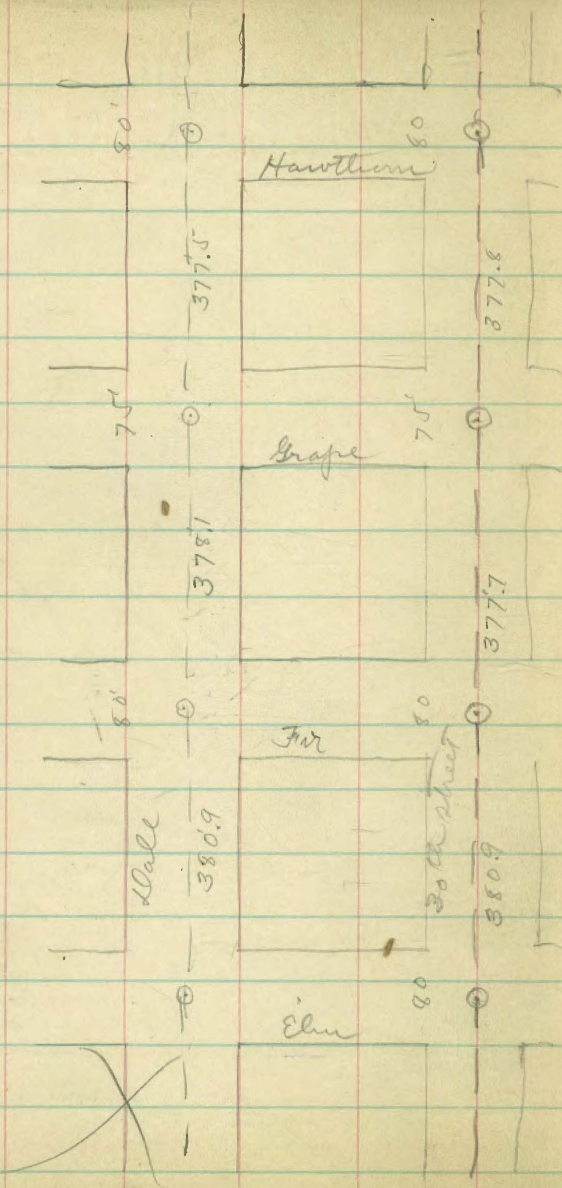 80' 80
Hawthorn
377.5 377.8
75' 75'
Grape
378.1 377.7
80' 80
Fir
Dale 380.9 30th street 380.9
80
Elm